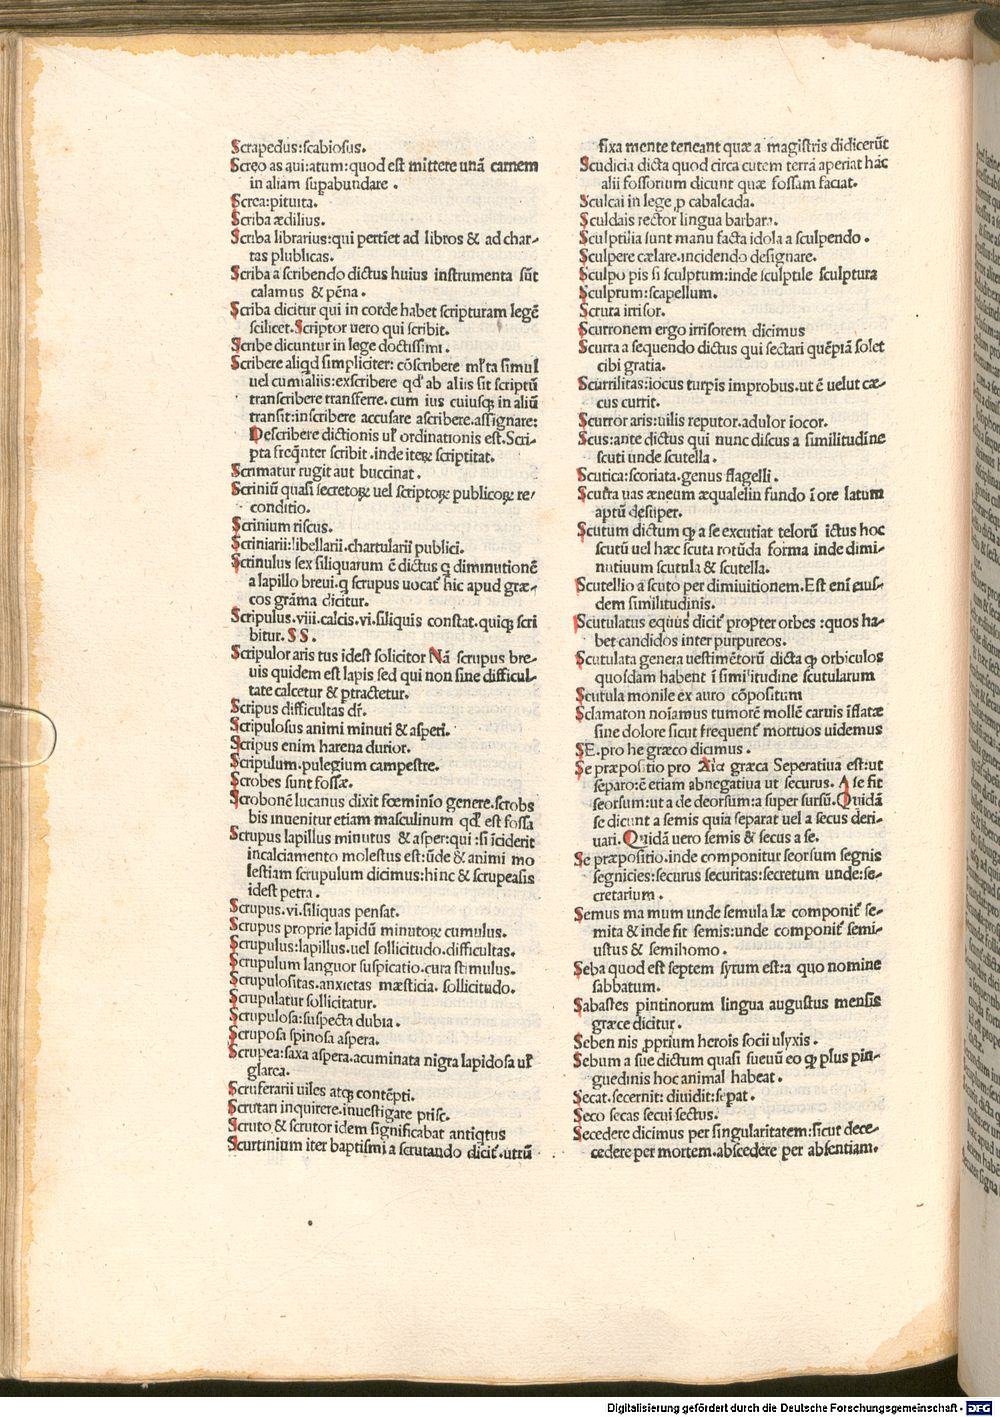 Scrapedus:scabiosus.
Screo as aui:atum:quod est mittere unã carnem
in aliam suꝑabundare .
Screa:pituita.
Scriba ædilius.
Scriba librarius:qui pertiet ad libros & ad char-
tas plublicas.
Scriba a scribendo dictus huius instrumenta sũt
calamus & pẽna .
Scriba dicitur qui in corde habet scripturam legẽ
scilicet.Scriptor uero qui scribit.
Scribe dicuntur in lege doctissimi .
Scribere aliqd simpliciter: cõscribere ml'ta simul
uel cum aliis:exscribere qd' ab aliis sit scriptũ
transcribere transferre. cum ius cuiusqꝫ in aliũ
transit:inscribere accusare ascribere.assignare:
Describere dictionis ul' ordinationis est.Scri-
pta freq̃nter scribit .inde iteꝝ scriptitat.
Scrimatur rugit aut buccinat .
Scriniũ quasi secretoꝝ uel scriptoꝝ publicoꝝ re/
conditio.
Scrinium riscus.
Scriniarii:libellarii.chartularii publici.
Scrinulus sex siliquarum ẽ dictus q diminutionẽ
a lapillo breui.q scrupus uocat' hic apud græ-
cos grãma dicitur.
Scripulus.viii.calcis.vi.siliquis constat.quiqꝫ scri
bitur. S S .
Scripulor aris tus idest solicitor Nã scrupus bre-
uis quidem est lapis sed qui non sine difficul-
tate calcetur & ꝑtractetur.
Scripus difficultas dr̃.
Scripulosus animi minuti & asperi.
Scripus enim harena durior.
Scripulum.pulegium campestre.
Scrobes sunt fossæ.
Scrobonẽ lucanus dixit fœminĩo genere.scrobs
bis inuenitur etiam masculinum qd' est fossa
Scrupus lapillus minutus & asper:qui :si ĩciderit
incalciamento molestus est:ũde & animi mo
lestiam scrupulum dicimus:hinc & scrupeasis
idest petra .
Scrupus.vi.siliquas pensat.
Scrupus proprie lapidũ minutoꝝ cumulus.
Scrupulus:lapillus.uel sollicitudo.difficultas.
Scrupulum languor suspicatio.cura stimulus.
Scrupulositas.anxietas mæsticia. sollicitudo.
Scrupulatur sollicitatur.
Scrupulosa:suspecta dubia .
Scruposa spinosa aspera.
Scrupea:saxa aspera.acuminata nigra lapidosa ul'
glarea.
Scruferarii uiles atqꝫ contẽpti.
Scrutari inquirere.inuestigare prisc.
Scruto & scrutor idem significabat antiqtus
Scurtinium iter baptismi a scrutando dicit'.utrũ
fixa mente teneant quæ a magistris didicerũt
Scudicia dicta quod circa cutem terrã aperiat hãc
alii fossorium dicunt quæ fossam faciat.
Sculcai in lege ꝓ cabalcada.
Sculdais rector lingua barbara.
Sculptilia sunt manu facta idola a sculpendo .
Sculpere cælare.incidendo designare.
Sculpo pis si sculptum:inde sculptile sculptura
Sculprum:scapellum.
Scrura irrisor.
Scurronem ergo irrisorem dicimus
Scurra a sequendo dictus qui sectari quẽpiã solet
cibi gratia.
Scurrilitas:iocus turpis improbus.ut ẽ uelut cæ-
cus currit.
Scurror aris:uilis reputor.adulor iocor.
Scus:ante dictus qui nunc discus a similitudine
scuti unde scutella .
Scutica:scoriata.genus flagelli .
Scutra uas æneum æqualelin fundo ĩ ore latum
aptũ desuper.
Scutum dictum ꝙ a se excutiat telorũ ictus hoc
scutũ uel hæc scuta rotũda forma inde dimi-
nutiuum scutula & scutella.
Scutellio a scuto per dimiuitionem.Est enĩ eius-
dem similitudinis.
Scutulatus equus dicit' propter orbes :quos ha-
bet candidos inter purpureos.
Scutulata genera uestimẽtorũ dicta ꝙ orbiculos
quosdam habent ĩ similitudine scutularum
Scutula monile ex auro cõpositum
Sclamaton noĩamus tumorẽ mollẽ carnis ĩflatæ
sine dolore sicut frequent' mortuos uidemus
SE.pro he græco dicimus .
Se præpositio pro Αια græca Seperatiua est:ut
separo:ẽ etiam abnegatiua ut securus. A se fit
seorsum:ut a de deorsum:a super sursũ.Quidã
se dicunt a semis quia separat uel a secus deri-
uari. Quidã uero semis & secus a se.
Se præpositio.inde componitur seorsum segnis
segnicies:securus securitas:secretum unde:se-
cretarium .
Semus ma mum unde semula læ componit' se-
mita & inde fit semis:unde componit' semi-
ustus & semihomo .
Seba quod est septem syrum est:a quo nomine
sabbatum.
Sabastes pintinorum lingua augustus mensis
græce dicitur .
Seben nis ꝓprium herois socii ulyxis .
Sebum a sue dictum quasi sueuũ eo ꝙ plus pin-
guedinis hoc animal habeat .
Secat.secernit: diuidit:seꝑat .
Seco secas secui sectus.
Secedere dicimus per singularitatem:sicut dece-
cedere per mortem.abscedere per absentiam.
Digitalisierung gefördert durch die Deutsche Forschungsgemeinschaft - DFG